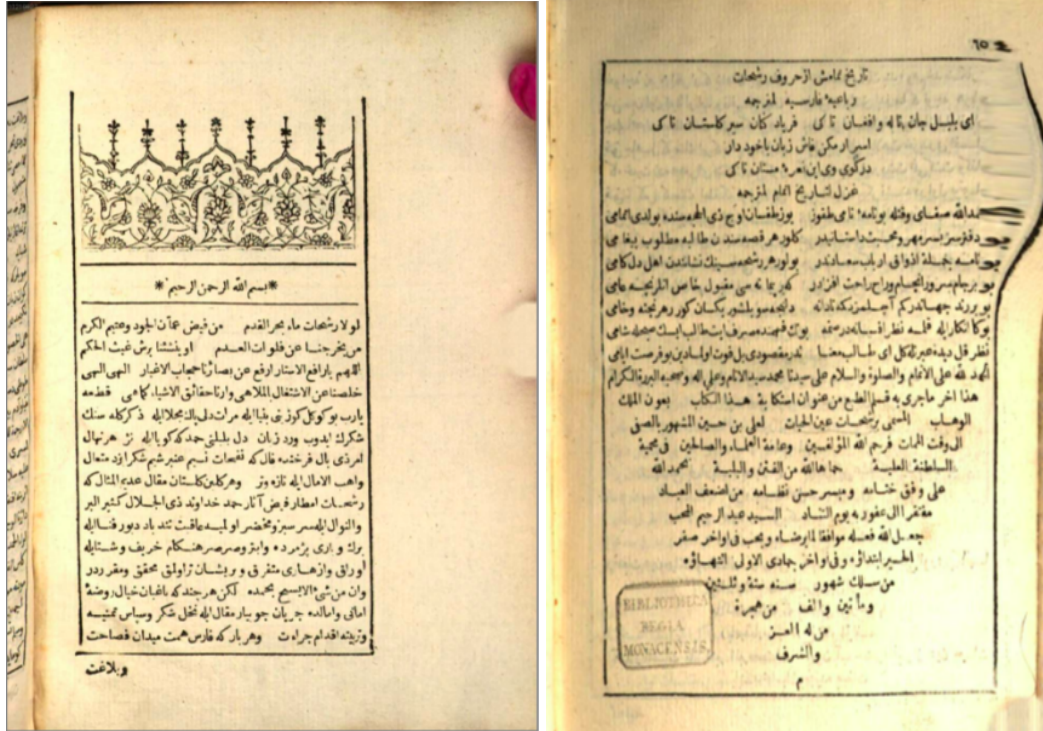 *بسم الله الرحمن الرحيم*
لولا رشحات ماء بحر القدم من فيض عمان الجود وعتيم الكرم
من يخرجنا عن فلوات العدم او ينشئنا برش غيث الحكم
اللهم يارافع الاستار ارفع عن بصائرنا حجاب الاغيار الهى الهى
خلصنا عن الاشتغال الملاهى وارنا حقائق الاشياء كما هى قطعه
يارب بو كوكل كوزينى بينا ايله مرات دلى مجلا ايله ذكركله سنك
شكرك ايدوب ورد زبان دل بلبلنى حمدكه كويا ايله هر نهال
امر ذى بال فرخنده فال كه نفحات نسيم عنبر شميم شكر ايزد متعال
واهب الامال ايله تازه وتر وهر كلبن كلستان مقال عديم المثال كه
رشحات امطار فيض آثار حمد خداوند ذى الجلال كثير البر
والنوال ايله سرسبز ومخضر اولميه عاقبت تند باد دبور فنا ايله
برك وبارى پژمرده وابتر وصرصر هنكام خريف وشتا ايله
اوراق وازهارى متفرق وپريشان تراولق محقق ومقرردر
وان من شئ الا يسبح بحمده لكن هر چند كه باغبان خيال روضۀ
امانى وآمالده جريان جويبار مقال ايله نخل شكر وسپاس
وتربيته اقدام وجرات وهر بار كه فارس همت ميدان فصاحت
وبلاغت
٦٥
تاريخ تمامش از حروف رشحات
رباعيۀ فارسيه لمترجمه
اى بلبل جان ناله وافغان تا كى فرياد كنان سير كلستان تا كى
اسرار مكن فاش زبان باخود دار
در كوى وى اين نعرۀ مستان تا كى
غزل لتاريخ اتمام لمترجمه
حمدالله صفاى وقتله بونامۀ نامى طقوز يوز طقسان اوچ ذى الحجه سنده بولدى اتمامى
سر مهر ومحبت داستانيدر كلور هر قصه سندن طالبه مطلوب پيغامى
اذواق ارباب سعادتدر بولور هر رشحه سيندن نشائه اهل دل كامى
راحت افزادر مقبول خاص
نظر قل ديدۀ عبرتله كل اى طالب معنا
الحمد لله على الانعام والصلوة والسلام على سيدنا محمد سيد الانام وعلى اله وصحبه البررة الكرام
هذا اخر ماجرى به قلم الطبع من عنوان استكتابة هذا الكتاب بعون الملك
الوهاب المسمى برشحات عين الحيات لعلى بن حسين المشهور بالصفى
الى وقت الممات فرحم الله المؤلفين وعامة العلماء والصالحين فى محمية
السلطنة العلية حماها الله من الفتن والبلية بحمد الله
على وفق ختامه وميسر حسن نظامه من اضعف العباد
مفتقرا الى عفو ربه يوم التناد السيد عبد الرحيم المحب
جعل الله فعله موافقا لما يرضاه ويحب فى اواخر صفر
الخير ابتداؤه وفى اواخر جمادى الاولى انتهاؤه
من سلك شهور سنه ستة وثلثين
ومأتين والف من هجرة
من له العز
والشرف
م
BIBLIOTHECA
REGIA
MONACENSIS